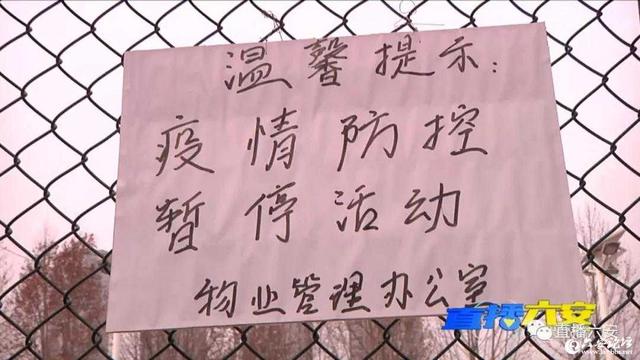 温馨提示:
疫情防控
暂停活动
物业管理办公室
直播六安
直播六安